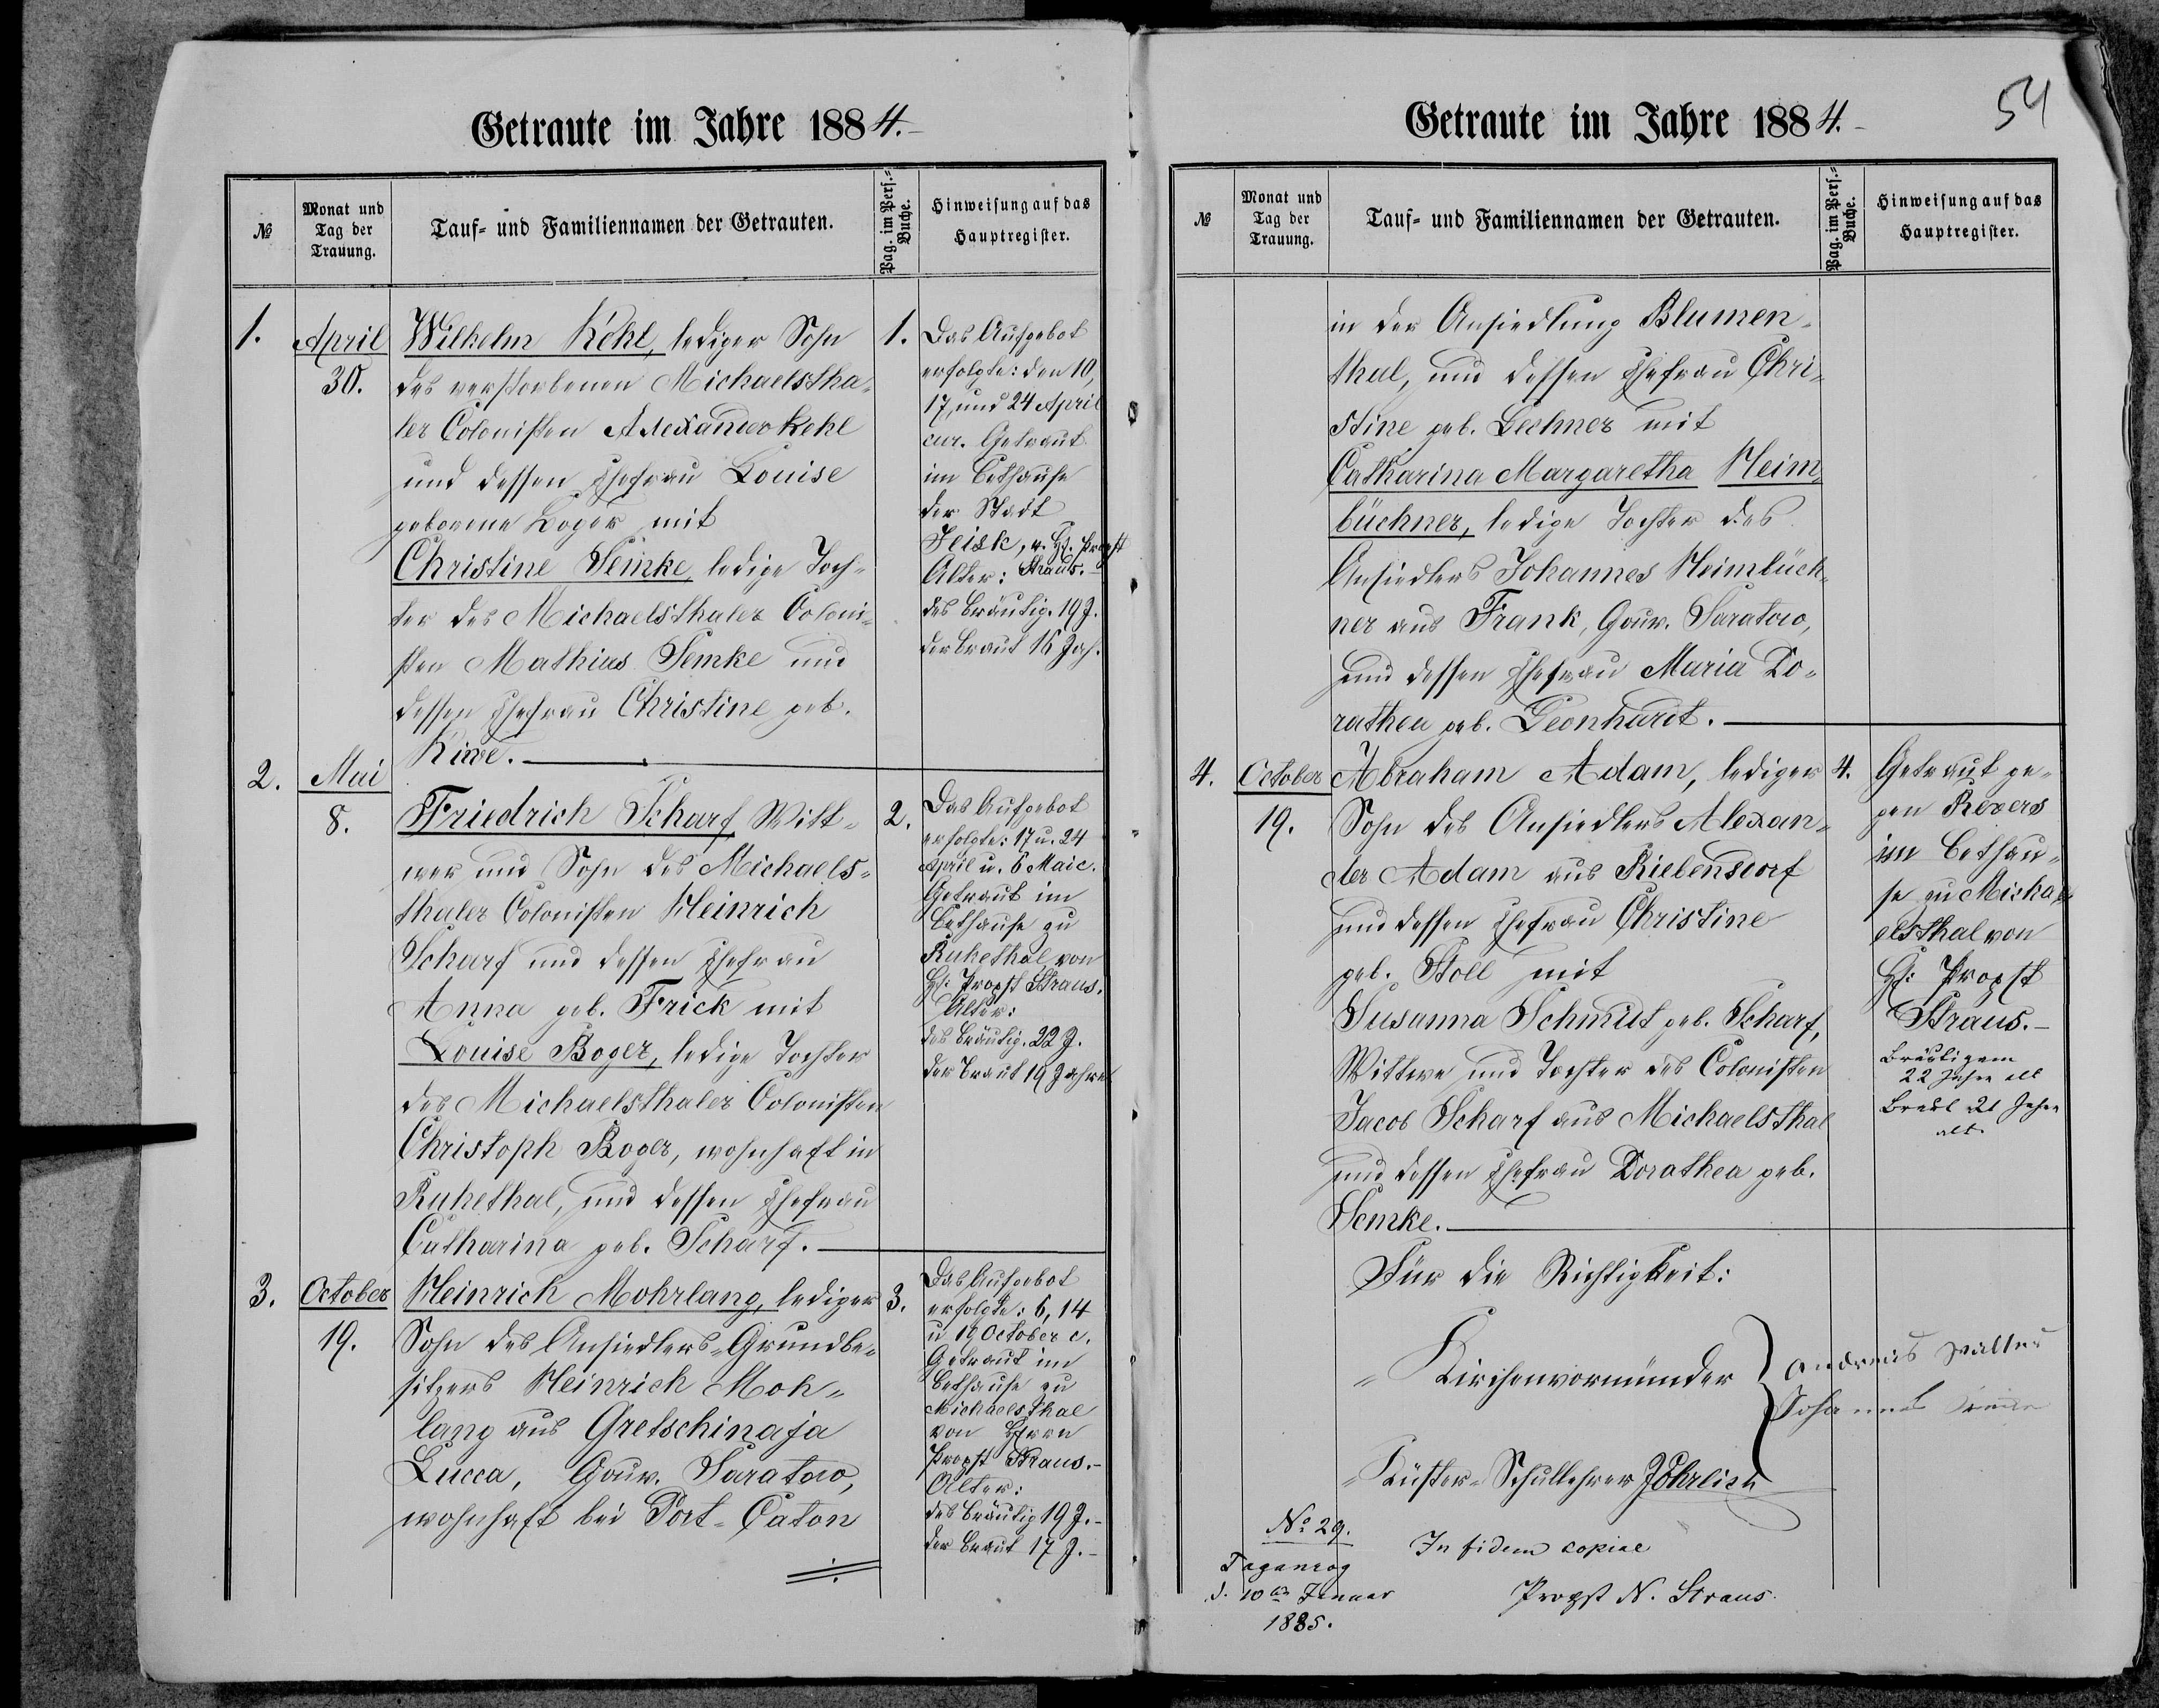 Getraute im Jahre 1884.
№
Monat und
Tag der
Trauung.
Tauf- und Familiennamen der Getrauten.
Pag. im Pers.-
Buche.
Hinweisung auf das
Hauptregister.
1.
April
30.
Wilhelm Kehl, lediger Sohn
des verstorbenen Michaelstha-
ler Colonisten Alexander Kehl
und dessen Ehefrau Louise
geborene Boger mit
Christine Semke, ledige Toch-
ter des Michaelsthaler Coloni-
sten Mathias Semke und
dessen Ehefrau Christine geb.
1.
Das Aufgebot
erfolgte: den 10,
17, und 24 April
cur. Getraut
im Bethause
der Stadt
Jeisk, v. H. Propst
Straus.
Alter:
des Bräutig. 19 J.
der Braut 16 Jah.
2.
Mai
8.
Friedrich Scharf Witt-
wer und Sohn des Michaels-
thaler Colonisten Heinrich
Scharf und dessen Ehefrau
Anna geb. Frick mit
Louise Boger, ledige Tochter
des Michaelsthaler Colonisten
Christoph Boger, wohnhaft in
Ruhethal, und dessen Ehefrau
Catharina geb. Scharf.
2.
Das Aufgebot
erfolgte: 17 u. 24
April u. 6 Mai c.
Getraut im
Bethause zu
Ruhethal von
H: Propst Straus.
Alter:
des Bräutig. 22 J.
der Braut 19 Jahre
3.
October
19.
Heinrich Mohrlang, lediger
Sohn des Ansiedlers-Grundbe-
sitzers Heinrich Moh-
lang aus Gretschinaja
Lucca, Gouv. Saratow,
wohnhaft bei Port-Caton
3.
Das Aufgebot
erfolgte: 6, 14
u 19 October c.
Getraut im
Bethause zu
Michaelsthal
von Herrn
Propst Straus.-
Alter:
des Bräutig 19 J.-
der Braut 17 J.-
54
Getraute im Jahre 1884.
№
Monat und
Tag der
Trauung.
Tauf- und Familiennamen der Getrauten.
Pag. im Pers.-
Buche.
Hinweisung auf das
Hauptregister.
in der Ansiedlung Blumen-
thal, und dessen Ehefrau Chri-
stine geb. Lechner mit
Catharina Margaretha Heim-
büchner, ledige Tochter des
Ansiedlers Johannes Heimbüch-
ner aus Frank, Gouv. Saratow,
und dessen Ehefrau Maria Do-
rathea geb. Leonhardt.
4.
October
19.
Abraham Adam, lediger
Sohn des Ansiedlers Alexan-
der Adam aus Riebensdorf
und dessen Ehefrau Christine
geb. Stoll mit
Susanna Schmidt geb. Scharf,
Wittwe und Tochter des Colonisten
Jacob Scharf aus Michaelsthal
und dessen Ehefrau Dorathea geb.
Semke.
4.
Getraut ge-
gen Revers
im Bethau-
se zu Micha-
elsthal von
H: Propst
Straus.-
Bräutigam
22 Jahre alt
Braut 21 Jahre
alt.
Für die Richtigkeit:
Kirchenvormünder
Andreas Walter
Johannes
Küster-Schullehrer
No 29.
Taganrog
d. 10ten Januar
1885.
In fidem copiae
Propst N. Straus.